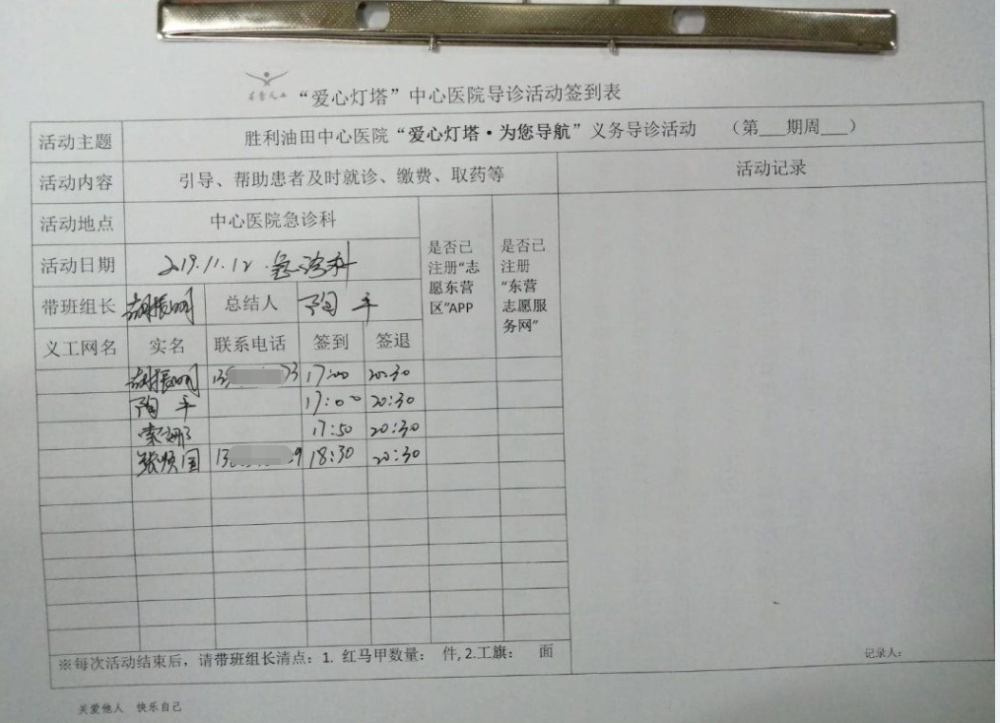 “爱心灯塔”中心医院导诊活动签到表
活动主题 胜利油田中心医院“爱心灯塔·为您导航”义务导诊活动 （第___期周___）
活动内容 引导、帮助患者及时就诊、缴费、取药等 活动记录
活动地点 中心医院急诊科 是否已注册“志愿东营区”APP 是否已注册“东营志愿服务网”
活动日期 2019.11.12.急诊科
带班组长 胡振明 总结人 陶平
义工网名 实名 联系电话 签到 签退
胡振明 13 73 17:00 20:30
陶平 17:00 20:30
索珊 17:50 20:30
张顺国 13 9 18:30 20:30
※每次活动结束后，请带班组长清点：1. 红马甲数量： 件, 2.工旗： 面
记录人：
关爱他人 快乐自己